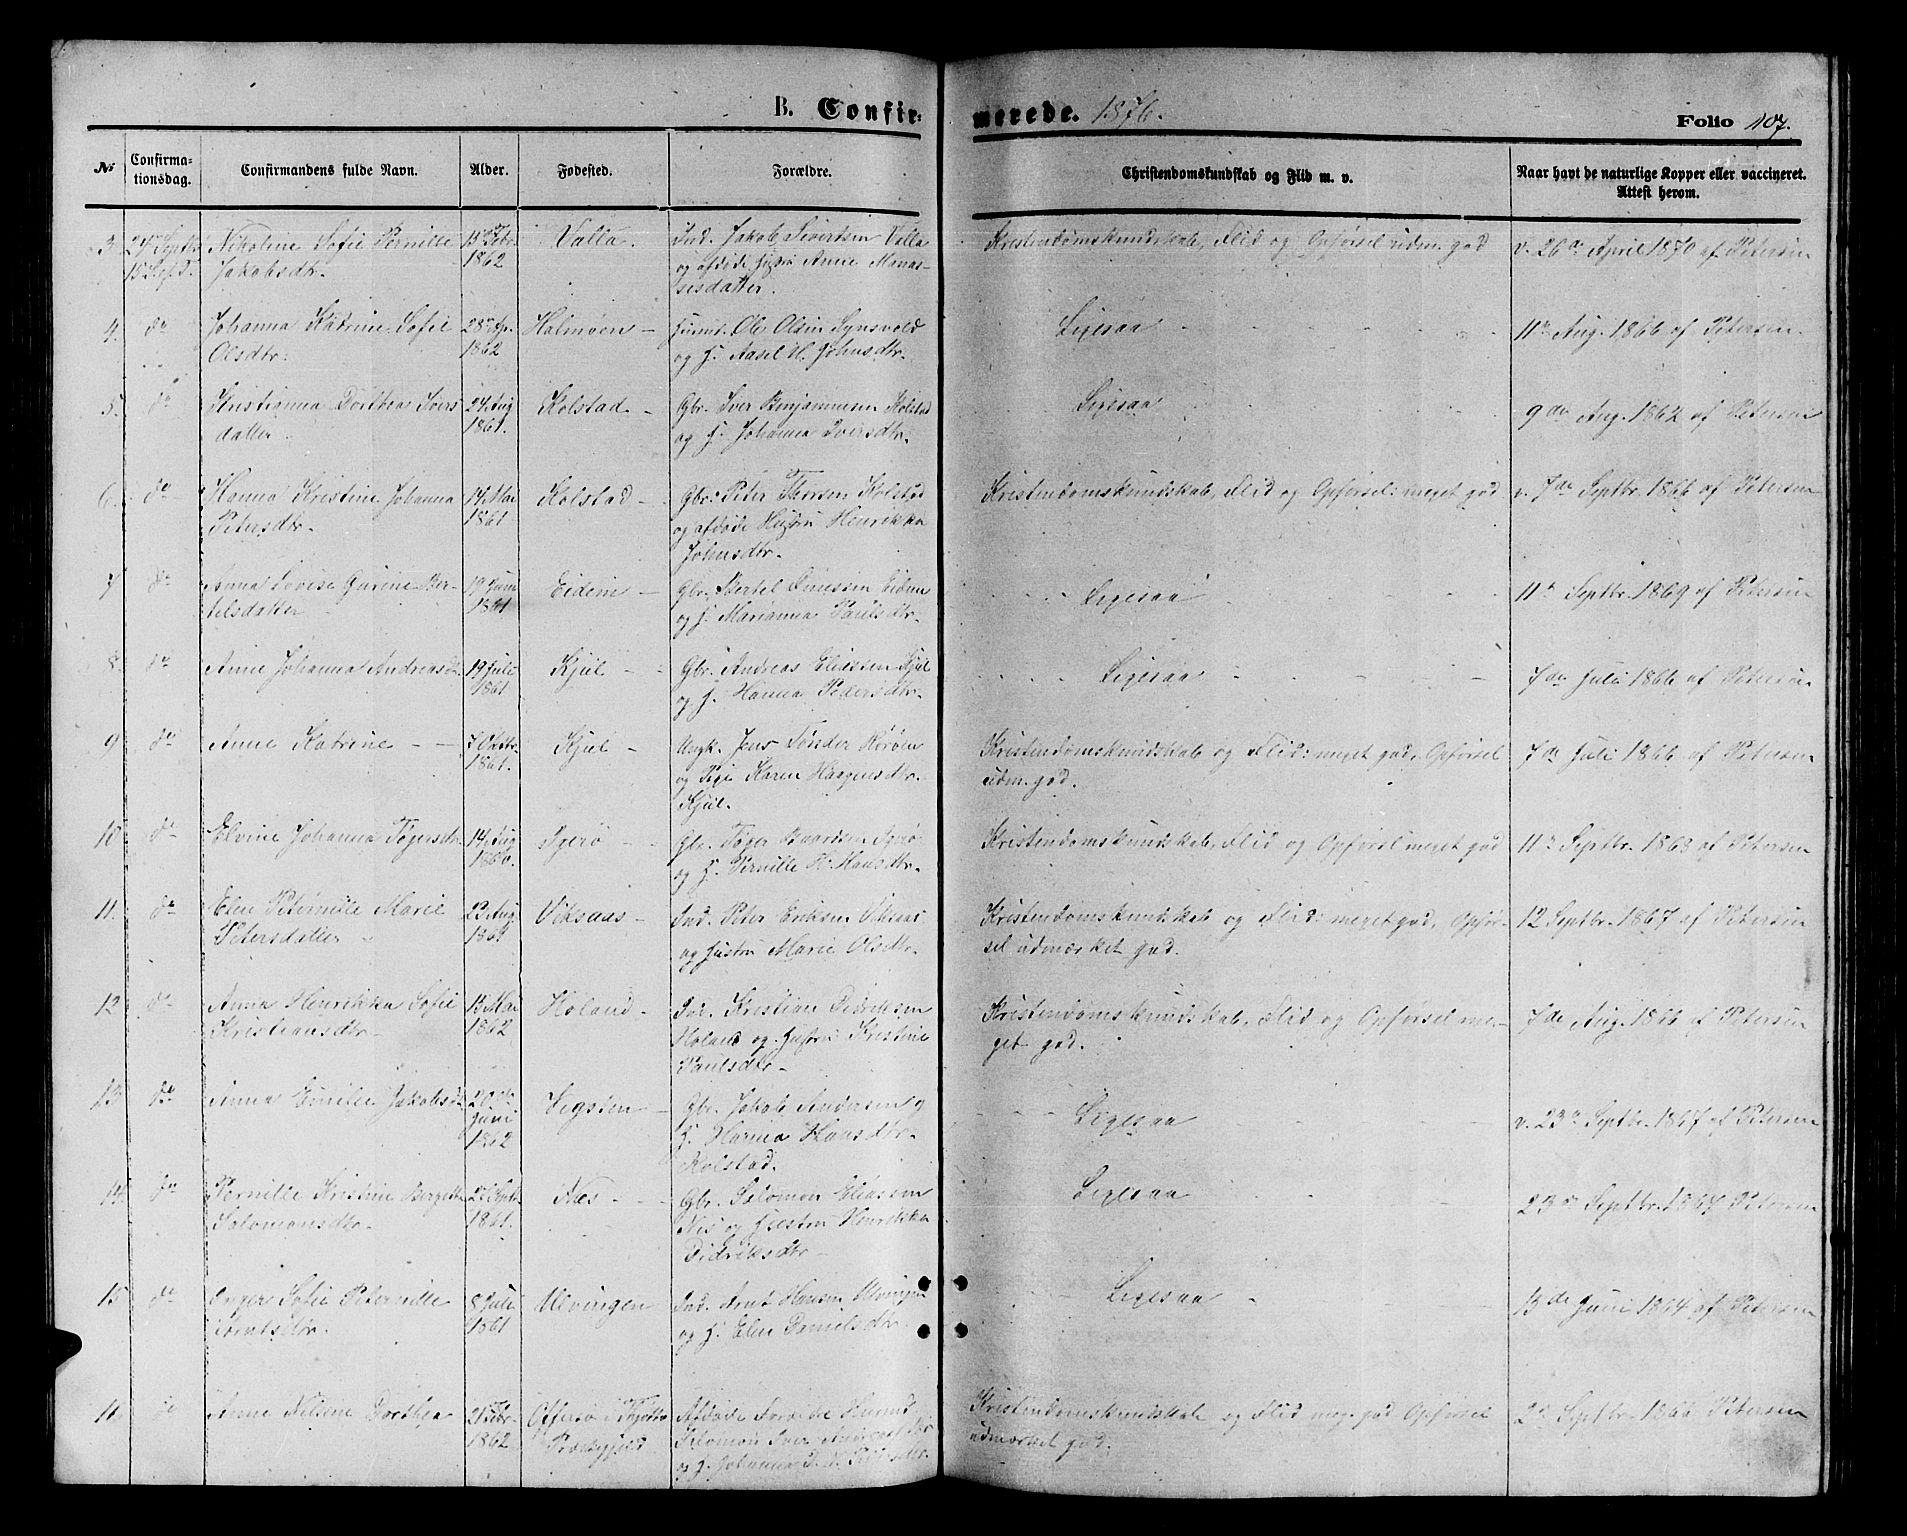 B. Confir-
merede. 1876.
Folio 107.
№
Confirma-
tionsdag.
Confirmandens fulde Navn.
Alder.
Fødested.
Forældre.
Christendomskundskab og Flid m. v.
Naar havt de naturlige Kopper eller vaccineret.
Attest herom.
3. 24de Septbr Nikoline Sofie Pernille Febr. Valla. Ind. Jakob Sivertsen Valla Kristendomskundskab, Flid og Opførsel udm. god v. 26de April 1870 af Petersen
Jakobsdtr. 1862 og afdøde Hustru Anne Manas-
sesdatter.
4. do Johanna Katrine Sofie 28de Apr. Halmøen - Huusm. Ole Olsen Synsvold Ligesaa 11te Aug. 1866 af Petersen.
Olsdtr. 1862 og H. Aasel M. Johnsdtr.
5. do Kristianna Dorthea Ivers 24 Aug Kolstad - Gbr. Iver Benjaminsen Kolstad Ligesaa 9de Aug. 1862 af Petersen
datter. 1861. og H. Johanna Iversdtr.
6. do Hanna Kristine Johanna 14 Mai Kolstad - Gbr. Peter Thorsen Kolstad Kristendomskundskab, Flid og Opførsel: meget god v. 7de Septbr. 1866 af Petersen
Petersdtr. 1861. og afdøde Hustru Henrikka
Johnsdtr.
7 do Anna Lovise Gurine Ber- 19 Juni Eidem - Gbr. Bertel Eidem Ligesaa 11te Septbr. 1869 af Petersen
telsdatter 1861 og H. Marianna Paulsdtr.
8. do Anne Johanna Andreasdtr 19 Juli Kjul - Gbr. Andreas Eliassen Kjul Ligesaa 7de Juli 1866 af Petersen
1861 og H. Hanna Pedersdtr.
9 do Anne Katrine - - 7 Oktbr. Kjul - Ungk. Jens Tønder Rørøen Kristendomskundskab og Flid: meget god, Opførsel 7de Juli 1866 af Petersen
1861. og Pige Karen Haagensdtr. udm. god.
Kjul.
10 do Elvine Johanna Tøgersdtr 14 Aug Igerø - Gbr. Tøger Baardsen Igerø Kristendomskundskab, Flid og Opførsel meget god 11te Septbr. 1863 af Petersen
1860. og H. Pernille Hansdtr.
11. do Elen Peternille Marie Aug. Viksaas - Ind. Peter Eriksen Viksaas Kristendomskundskab og Flid: meget god, Opfør- 12 Septbr. 1867 af Petersen
Petersdatter 1861 og Hustru Marie Olsdtr. sel udmærket god.
12 do Anna Henrikka Sofie 13 Mai Holand - Kristian Didriksen Kristendomskundskab, Flid og Opførsel me- 7de Aug. 1866 af Petersen
Kristiansdtr. 1862 Holand og Hustru Kristine get god.
Paulsdtr.
13 do Anna Emilie Jakobsdtr 20de Vegsten - Gbr. Jakob Andersen og Ligesaa v. 23de Septbr. 1867 af Petersen
Juni H. Hanna Hansdtr.
1862 Kolstad.
14. do Pernille Kristine Bergette Septbr Næs - Gbr. Salomon Eliassen Ligesaa 23de Septbr. 1867 Petersen
Salomonsdtr. 1861. Næs og Hustru Henrikka
Didriksdtr.
15 do Inger Sofie Peternille 8 Juli Ulvingen Ind. Arnt Hansen Ulvingen Ligesaa 13de Juni 1864 af Petersen
Arntsdtr. 1861 og H. Elen Danielsdtr.
16 do Anne Nilsine Dorthea 21 Febr. Offersø i Tjøtta Afdøde Forældre Kristendomskundskab og Flid meg. god Opførsel 2de Septbr. 1866 Petersen
1862 Præstegjeld Salomon Iver udmærket god.
og H. Johanna